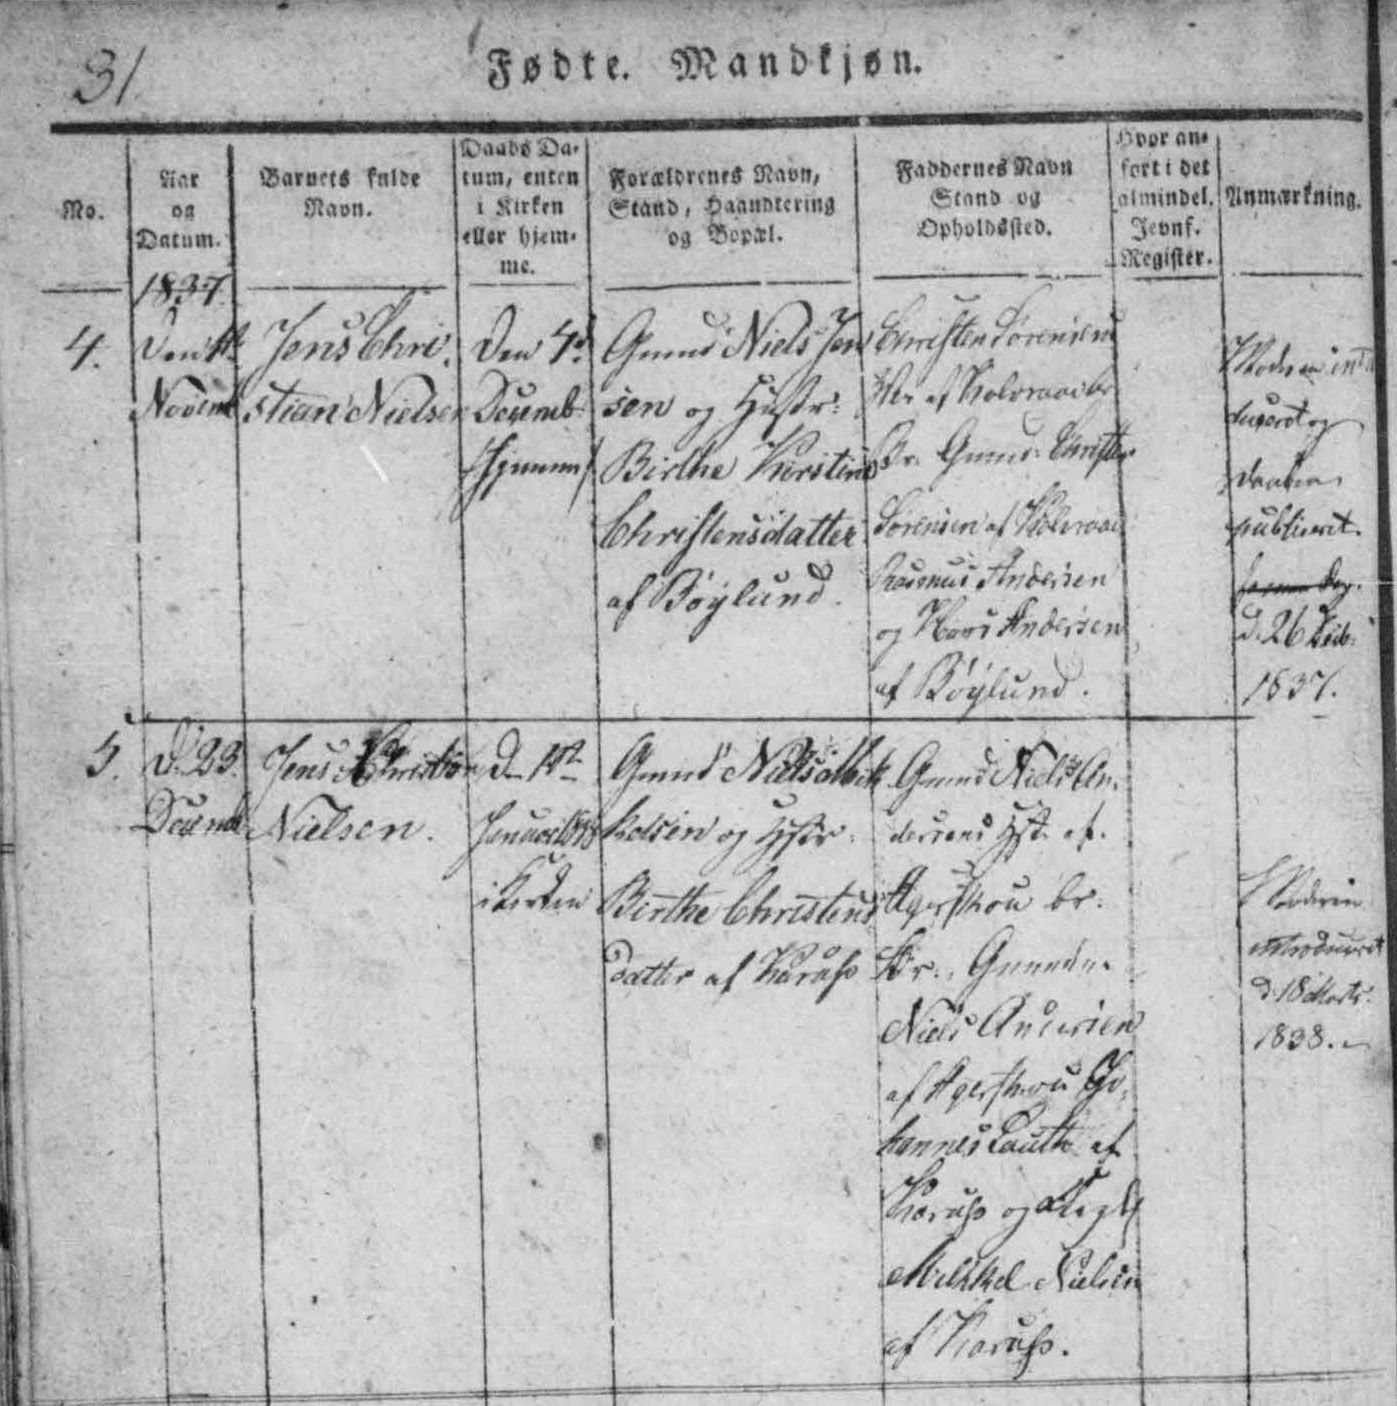 31
Fødte. Mandkjøn.
No.
Aar
og
Datum.
Barnets fulde
Navn.
Daabs Da-
tum, enten
i Kirken
eller hjem-
me.
Forældrenes Navn,
Stand, Haandtering
og Bopæl.
Faddernes Navn
Stand og
Opholdssted.
Hvor an-
fort i det
almindel.
Jevnf.
Register.
Anmærkning.
1837
4.
Den
Novemb
Jens Chri-
stian Nielsen
Den 4d
Decemb
Hjemme
Gmnd Niels Jen
sen og Hustr:
Birthe Kirstine
Christensdatter
af Böÿlund.
Christen Sörensens
af
Br. Gmnd: Christen
Sörensen af
Rasmus Andersen
og Andersen
af Böÿlund.
Moderen int
duceret og
Daaben
publiceret
samme Dag.
d. 26 Deb:
1837.
5.
D. 23
Decemb
Jens Christian
Nielsen.
D 1st
Januar 1838
i Kirken
Gmnd Niels Mik
kelsen og Hstr:
Birthe Christens
datter af Karuss
Gmnd Niels An-
dersens Hst. af
Agerskou br:
Br., Gmnd
Niels Andersen
af Agerskou Jo-
hannes Lauth af
Karuss og
Mikkel Nielsen
af Karuss.
Moderen
introduceret
d. 18 Marts
1838.